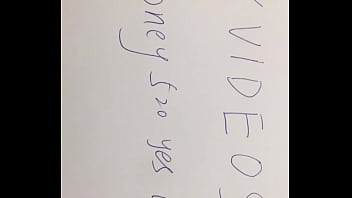 XVIDEOS
oney 520 yes